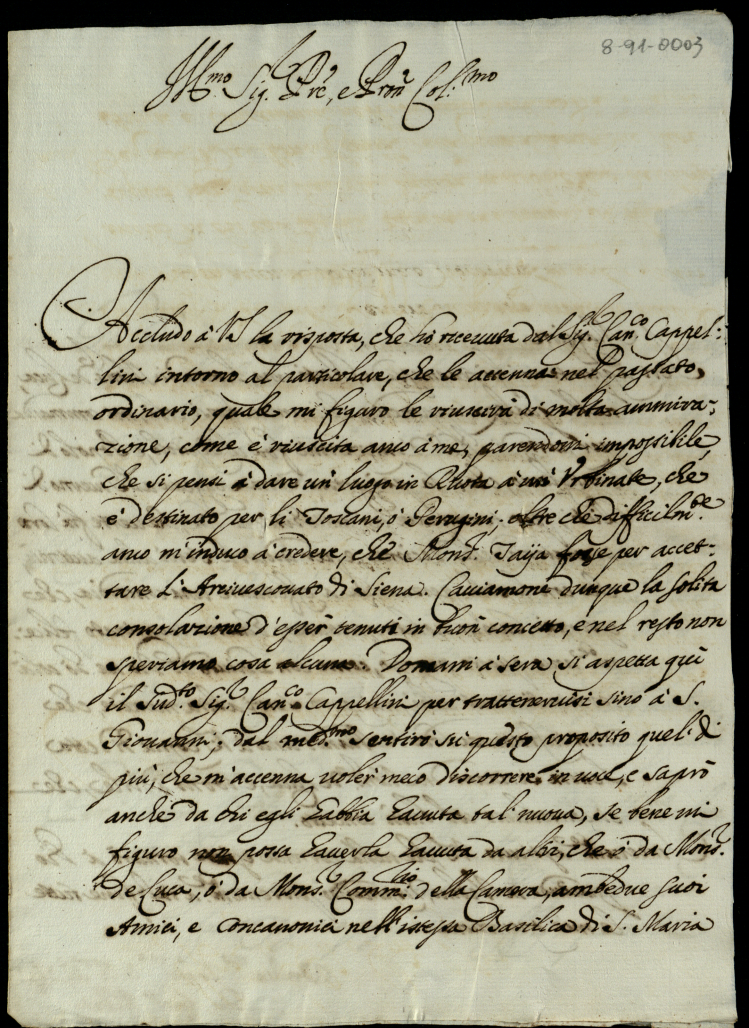 8-91-0003
Ill.mo Sig.r Pre, e Pron Col.mo
Accludo à VS la risposta, che hò riceuuta dal Sig.r Can.co Cappel-
lini intorno al particolare, che le accennai nel passato
ordinario, quale mi figuro le riuscirà di molta ammira-
zione, come è riuscita anco à me, parendomi impossibile,
che si pensi à dare un luogo in Ruota à un' Vrbinate, che
è destinato per li Toscani, ò Perugini, oltre che difficilm.te
anco m'induco à credere, che Mons.r Taija fosse per accet-
tare L'Arciuescouato di Siena. Cauiamone dunque la solita
consolazione d'esser tenuti in buon concetto, e nel resto non
speriamo cosa alcuna. Domani à sera si aspetta quì
il Sud.to Sig.r Can.co Cappellini per tratteneruisi sino à S.
Giouanni; dal med.mo sentirò sù questo proposito quel di
più, che m'accenna voler meco discorrere in voce, e saprò
anche da chi egli habbia hauuta tal nuoua, se bene mi
figuro non possa hauerla hauuta da altri, che ò da Mons.r
de Luca, ò da Mons.r Comm.rio della Camera, ambedue suoi
Amici, e Concanonici nell'istessa Basilica di S. Maria